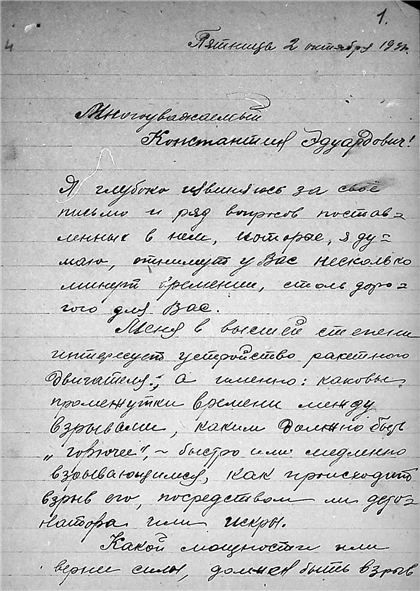 1.
Пятница 2 октября 193
Многоуважаемый
Константин Эдуардович!
Я глубоко извиняюсь за своё
письмо и ряд вопросов постав-
ленных в нем, которые, я ду-
маю, отнимут у Вас несколько
минут времени, столь доро-
гого для Вас.
Меня в высшей степени
интересует устройство ракетного
двигателя; а именно: каковы
промежутки времени между
взрывами, каким должно быть
„горючее", - быстро или медленно
взрывающимся, как происходит
взрыв его, посредством ли дето-
натора или искры.
Какой мощности или
вернее силы, должен быть взрыв